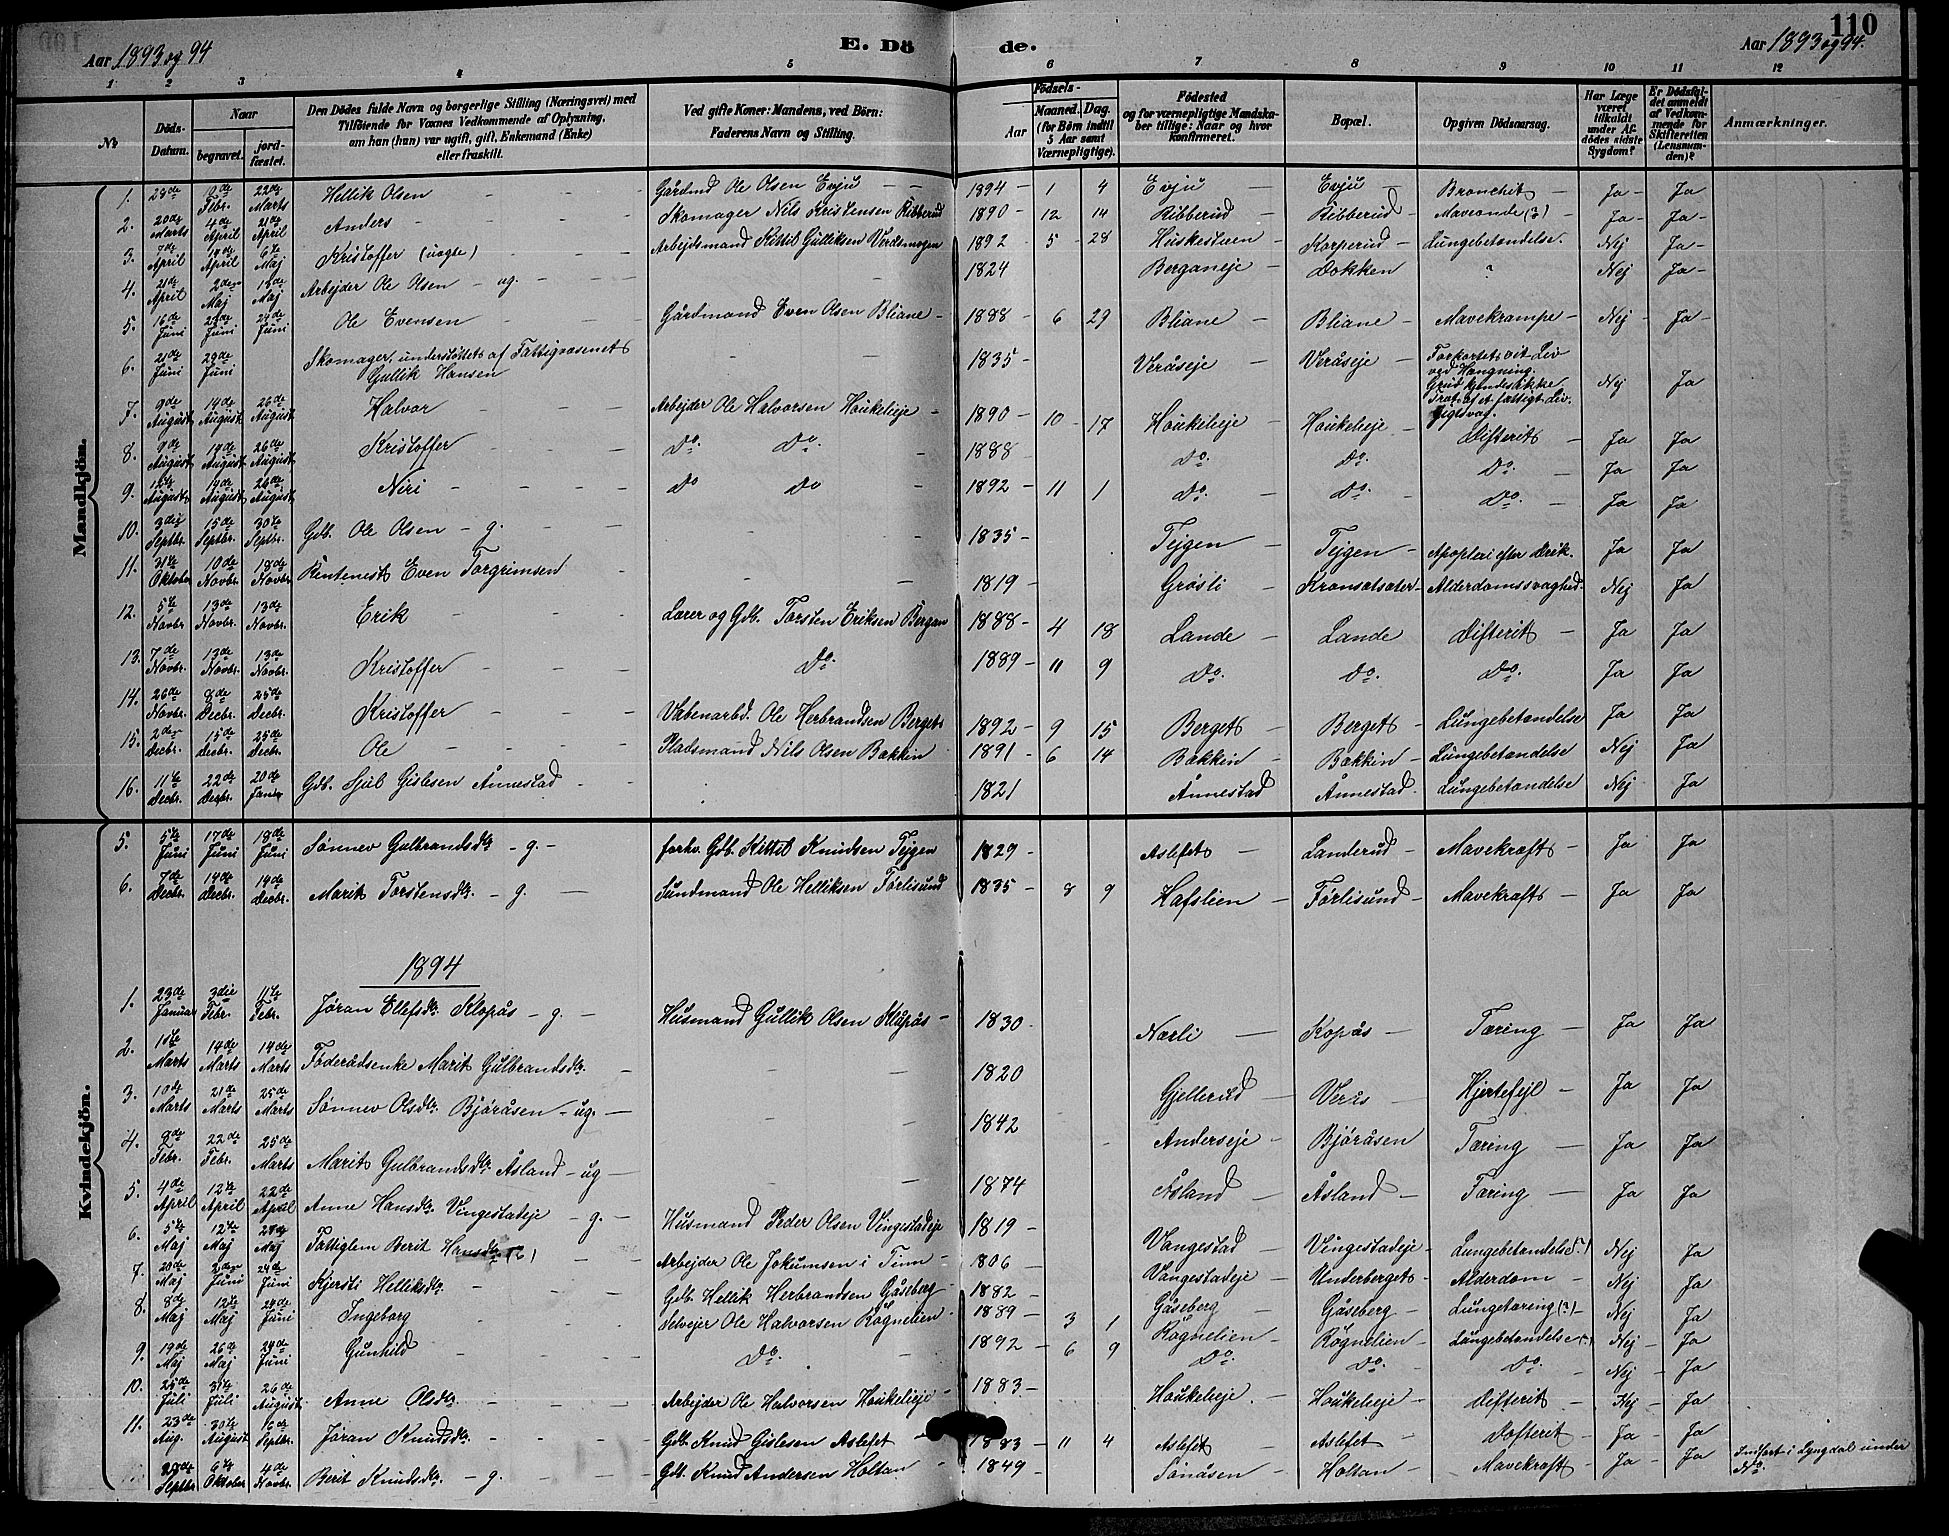 110
Aar 1893 og 94
E. Dö de.
Aar 1893 og 94.
1 2 3 4 5 6 7 8 9 10 11 12
No
Döds-Datum.
Naar
begravet.
jord-fæstet.
Den Dødes fulde Navn og borgerlige Stilling (Næringsvei) med
Tilföiende for Voxnes Vedkommende af Oplysning,
om han (hun) var ugift, gift, Enkemand (Enke)
eller fraskilt.
Ved gifte Koner: Mandens, ved Börn:
Faderens Navn og Stilling.
Födsels-
Aar
Maaned. Dag.
(for Börn indtil
5 Aar samt
Værnepligtige).
Födested
og for værnepligtige Mandska-
ber tillige: Naar og hvor
konfirmeret.
Bopæl.
Opgiven Dödsaarsag.
Har Læge
været
tilkaldt
under Af-
dödes sidste
Sygdom?
Er Dödsfal-
det anmeldt
af Vedkom-
mende for
Skifteretten
(Lensman-
den)?
Anmærkninger.
Mandkjön.
1. 28de 9de Febr. 22de Marts Hellik Olsen Gårdmd Ole Olsen Evju 1894 1 4 Evju Evju Bronchit Ja Ja
2. 20de Marts 4de April 21de April Anders Skomager Nils Kristensen Ribberud 1890 12 14 Ribberud Ribberud Maveonde (?) Ja Ja
3. 7de April 19de April 6te Maj Kristoffer (uægte) Arbejdsmand Kittil Gulliksen 1892 5 28 Huskestuen Korperud Lungebetændelse. Nej Ja
4. 21de April 2den Maj 15de Maj Arbejder Ole Olsen ug. 1824 Berganeje Dokken ? Nej Ja
5. 16de Juni 24de Juni 24de Juni Ole Evensen Gårdmand Even Olsen Bliane 1888 6 29 Bliane Bliane Mavekrampe Nej Ja
6. 21de Juni 29de Juni Skomager, understöttet af Fattigvæsenet Gullik Hansen 1835 Veråseje Veråseje Forkortet sit Liv ved Hængning. Nej Ja
7. 9de August 14de August 26de August Halvor Arbejder Ole Halvorsen Houkelieje 1890 10 17 Houkelieje Houkelieje Difterit Ja Ja
8. 9de August 19de August 26de August Kristoffer Do. Do. 1888 Do. Do. Do. Ja Ja
9. 12te August 19de August 26de August Niri Do Do 1892 11 1 Do. Do. Do. Ja Ja
10. 3die Septbr. 15de Septbr. 30te Septbr. Gdb. Ole Olsen g. 1835 Tejgen Tejgen Apoplexi efter Drik. Ja Ja
11. 31te Oktober 10de Novbr. 18de Novbr. Rentenist Even Torgrimsen 1819 Grøsli Alderdomssvaghed. Nej Ja
12. 5te Novbr. 13de Novbr. 13de Novbr. Erik Lærer og Gdb. Torsten Eriksen Bergan 1888 4 18 Lande Lande Difterit Ja Ja
13. 7de Novbr. 13de Novbr. 13de Novbr. Kristoffer Do. 1889 11 9 Do. Do. Do. Ja Ja
14. 26de Novbr. 8de Decbr. 25de Decbr. Kristoffer Vabenarbd. Ole Herbrandsen Berget 1892 9 15 Berget Berget Lungebetændelse Ja Ja
15. 2den Decbr. 15de Decbr. 25de Decbr. Ole Pladsmand Nils Olsen Bakkin 1891 6 14 Bakkin Bakkin Lungebetændelse Nej Ja
16. 11te Decbr. 22de Decbr. 20de Janr Gdb. Sjul Gislesen Ånnestad 1821 Ånnestad Ånnestad Lungebetændelse Nej Ja
Kvindekjön.
5. 5te Juni 17de Juni 18de Juni Sønnev Gulbrandsdtr g. forhv. Gdb. Kittel Knudsen Tejgen 1829 Aslefet Landerud Mavekræft Ja Ja
6. 7de Decbr. 14de Decbr. 14de Decbr. Marit Torstensdtr. g. Sundmand Ole Helliksen Førlisund 1835 8 9 Hafslien Førlisund Mavekræft Ja Ja
1894
1. 23de Januar 3die Febr. 11te Febr. Jøran Ellefsdtr Klopås g. Husmand Gullik Olsen Klupås 1830 Narli Kopås Tæring Ja Ja
2. Marts 14de Marts 14de Marts Føderådsenke Marit Gulbrandsdtr. 1820 Gjellerud Verås Hjertefejl Ja Ja
3. 10de Marts 21de Marts 25de Marts Sønnev Olsdtr. Bjøråsen ug. 1842 Anderseje Bjøråsen Tæring Ja Ja
4. 9de Febr. 22de Febr. 25de Marts Marit Gulbrandsdtr Åsland ug 1874 Åsland Åsland Tæring Ja Ja
5. 4de April 12te April 22de April Anne Hansdtr Vingestadeje g. Husmand Peder Olsen Vingestadeje 1819 Vangestad Vingestadeje Lungebetændelse Nej Ja
6. 5te Maj 12te Maj Maj Fattiglem Berit Hansdtr Arbejder Ole Jokumsen i Tinn 1806 Vangestadeje Underberget Alderdom Nej Ja
7. 20de Maj 2den Juni 24de Juni Kjersti Helliksdtr. Gdb. Hellik Herbrandsen Gåseberg 1882 Gåseberg Gåseberg Lungetæring (?) Nej Ja
8. 8de Maj 12te Maj 24de Juni Ingeborg Selvejer Ole Halvorsen Rognelien 1889 3 1 Rognelien Rognelien Lungebetændelse Nej Ja
9. 19de Maj 26de Maj 24de Juni Gunhild Do. 1892 6 9 Do. Do. Do. Nej Ja
10. 25de Juli 31te Juli 26de August Anne Olsdtr. Arbejder Ole Halvorsen Houkelieje 1883 Houkelieje Houkelieje Difterit Nej Ja
11. 23de Aug. 30te August 16de Septbr. Jøran Knudsdtr. Gdb. Knud Gislesen Aslefet 1883 11 4 Aslefet Aslefet Difterit Ja Ja
28de Septbr 6te Oktober 4de Novbr. Berit Knudsdtr g. Gdb. Knud Andersen Holtan 1849 Sønåsen Holtan Mavekræft Ja Ja Indført i Lyngdal under No.